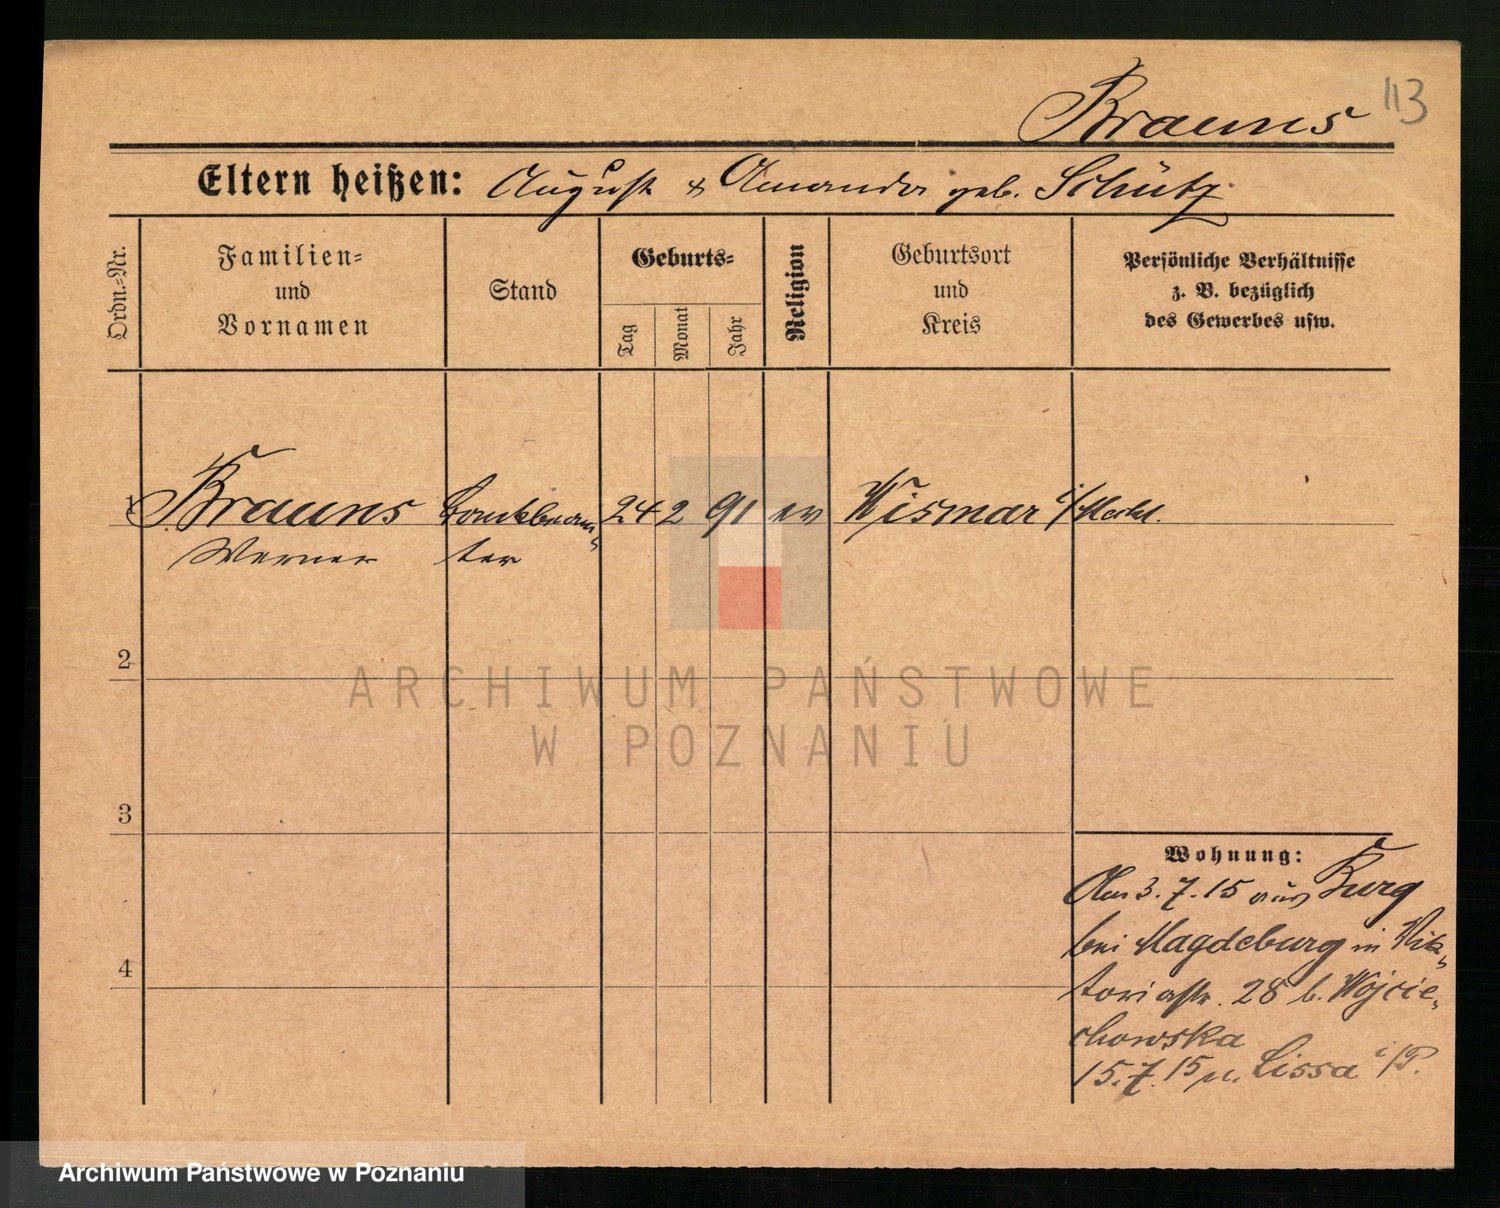 113
Brauns
Eltern heißen: August & Amanda geb. Schütz
Ordn.=Nr.
Familien=
und
Vornamen
Stand
Geburts=
Tag
Monat
Jahr
Religion
Geburtsort
und
Kreis
Persönliche Verhältnisse
z. B. bezüglich
des Gewerbes usw.
1 Brauns Bankbeam= 24 2 91 ev Wismar i/Meckl.
Werner ter
2
3
4
Wohnung:
Am 3.7.15 aus Burg
bei Magdeburg in Vik=
toriastr. 28 b. Wojcie=
chowska
15.7.15 n. Lissa i/P.
ARCHIWUM PAŃSTWOWE
W POZNANIU
Archiwum Państwowe w Poznaniu